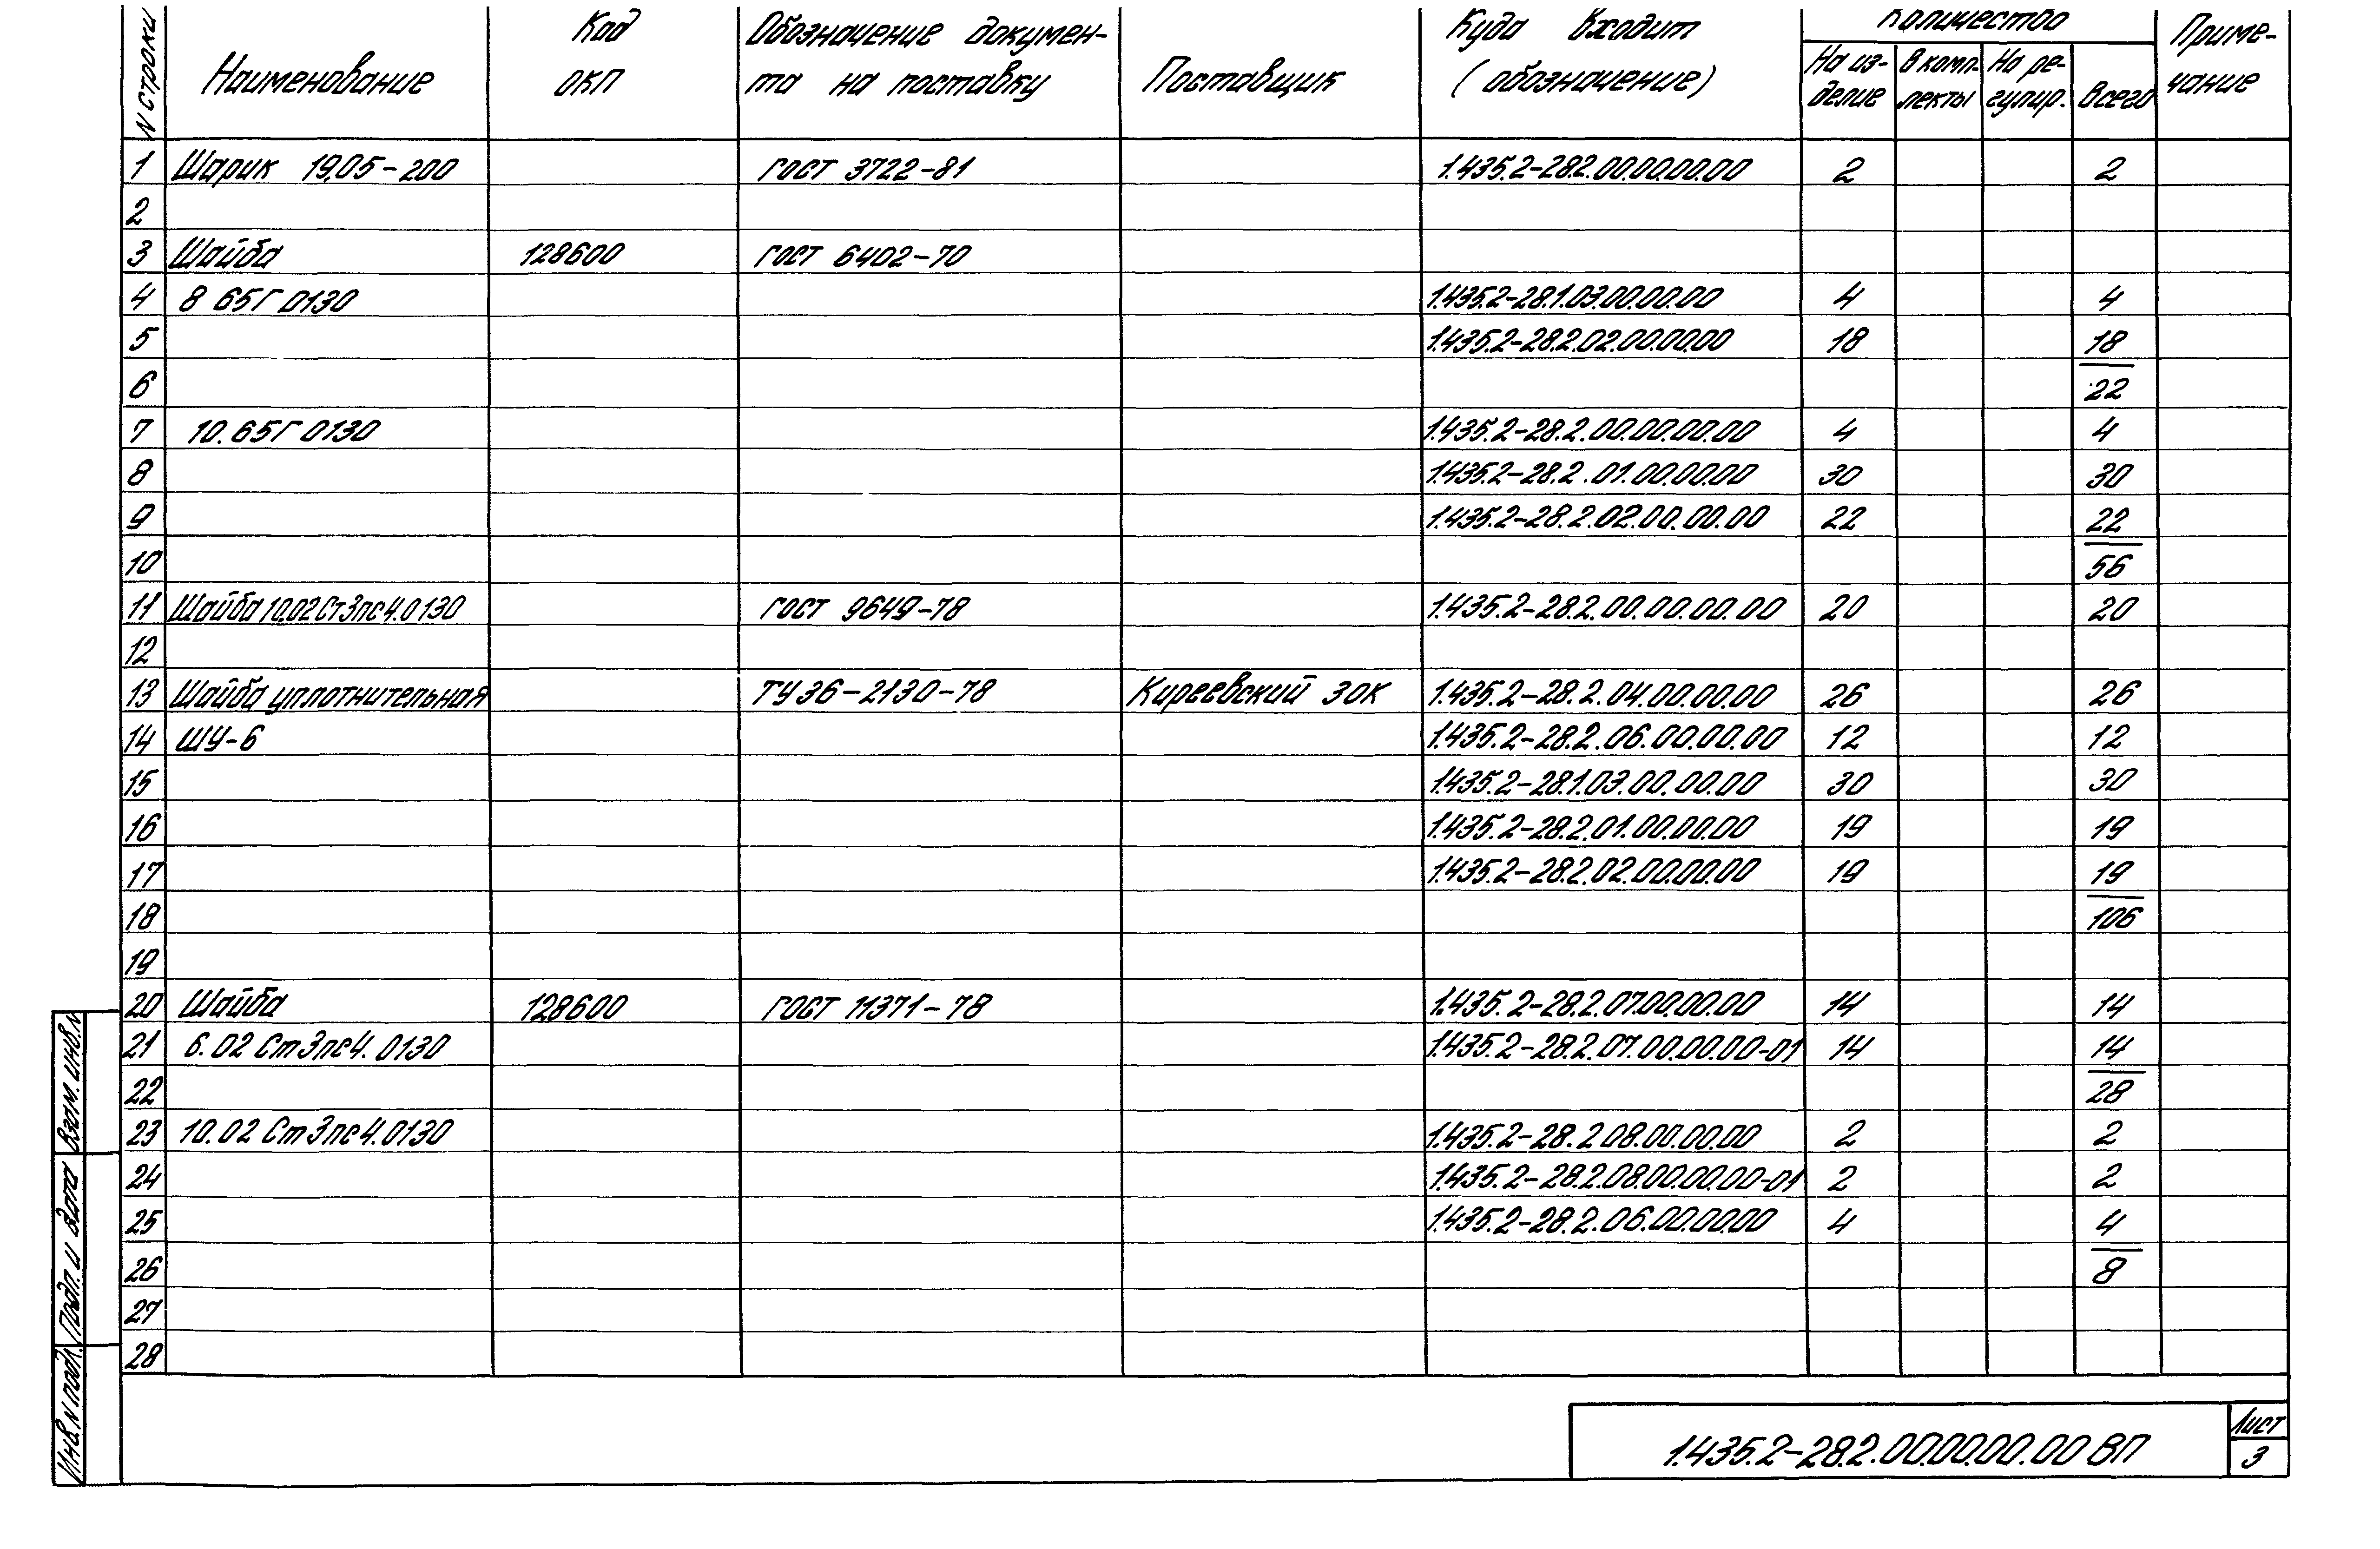 N строки
Наименование
Код
ОКП
Обозначение докумен-
та на поставку
Поставщик
Куда входит
(обозначение)
Количество
На из-
делие
В комп-
лекты
На ре-
гулир.
Всего
Приме-
чание
1 Шарик 19,05-200 ГОСТ 3722-81 1.435.2-28.2.00.00.00.00 2 2
2
3 Шайба 128600 ГОСТ 6402-70
4 8 65Г 0130 1.435.2-28.1.03.00.00.00 4 4
5 1.435.2-28.2.02.00.00.00 18 18
6 22
7 10.65Г 0130 1.435.2-28.2.00.00.00.00 4 4
8 1.435.2-28.2.01.00.00.00 30 30
9 1.435.2-28.2.02.00.00.00 22 22
10 56
11 Шайба 10.02 Ст3пс4.0130 ГОСТ 9649-78 1.435.2-28.2.00.00.00.00 20 20
12
13 Шайба уплотнительная ТУ 36-2130-78 Киреевский ЗОК 1.435.2-28.2.04.00.00.00 26 26
14 ШУ-6 1.435.2-28.2.06.00.00.00 12 12
15 1.435.2-28.1.03.00.00.00 30 30
16 1.435.2-28.2.01.00.00.00 19 19
17 1.435.2-28.2.02.00.00.00 19 19
18 106
19
20 Шайба 128600 ГОСТ 11371-78 1.435.2-28.2.07.00.00.00 14 14
21 6.02 Ст3пс4.0130 1.435.2-28.2.07.00.00.00-01 14 14
22 28
23 10.02 Ст3пс4.0130 1.435.2-28.2.08.00.00.00 2 2
24 1.435.2-28.2.08.00.00.00-01 2 2
25 1.435.2-28.2.06.00.00.00 4 4
26 8
27
28
Взам. инв.N
Подп. и дата
Инв.N подл.
1.435.2-28.2.00.00.00.00 ВП
Лист
3